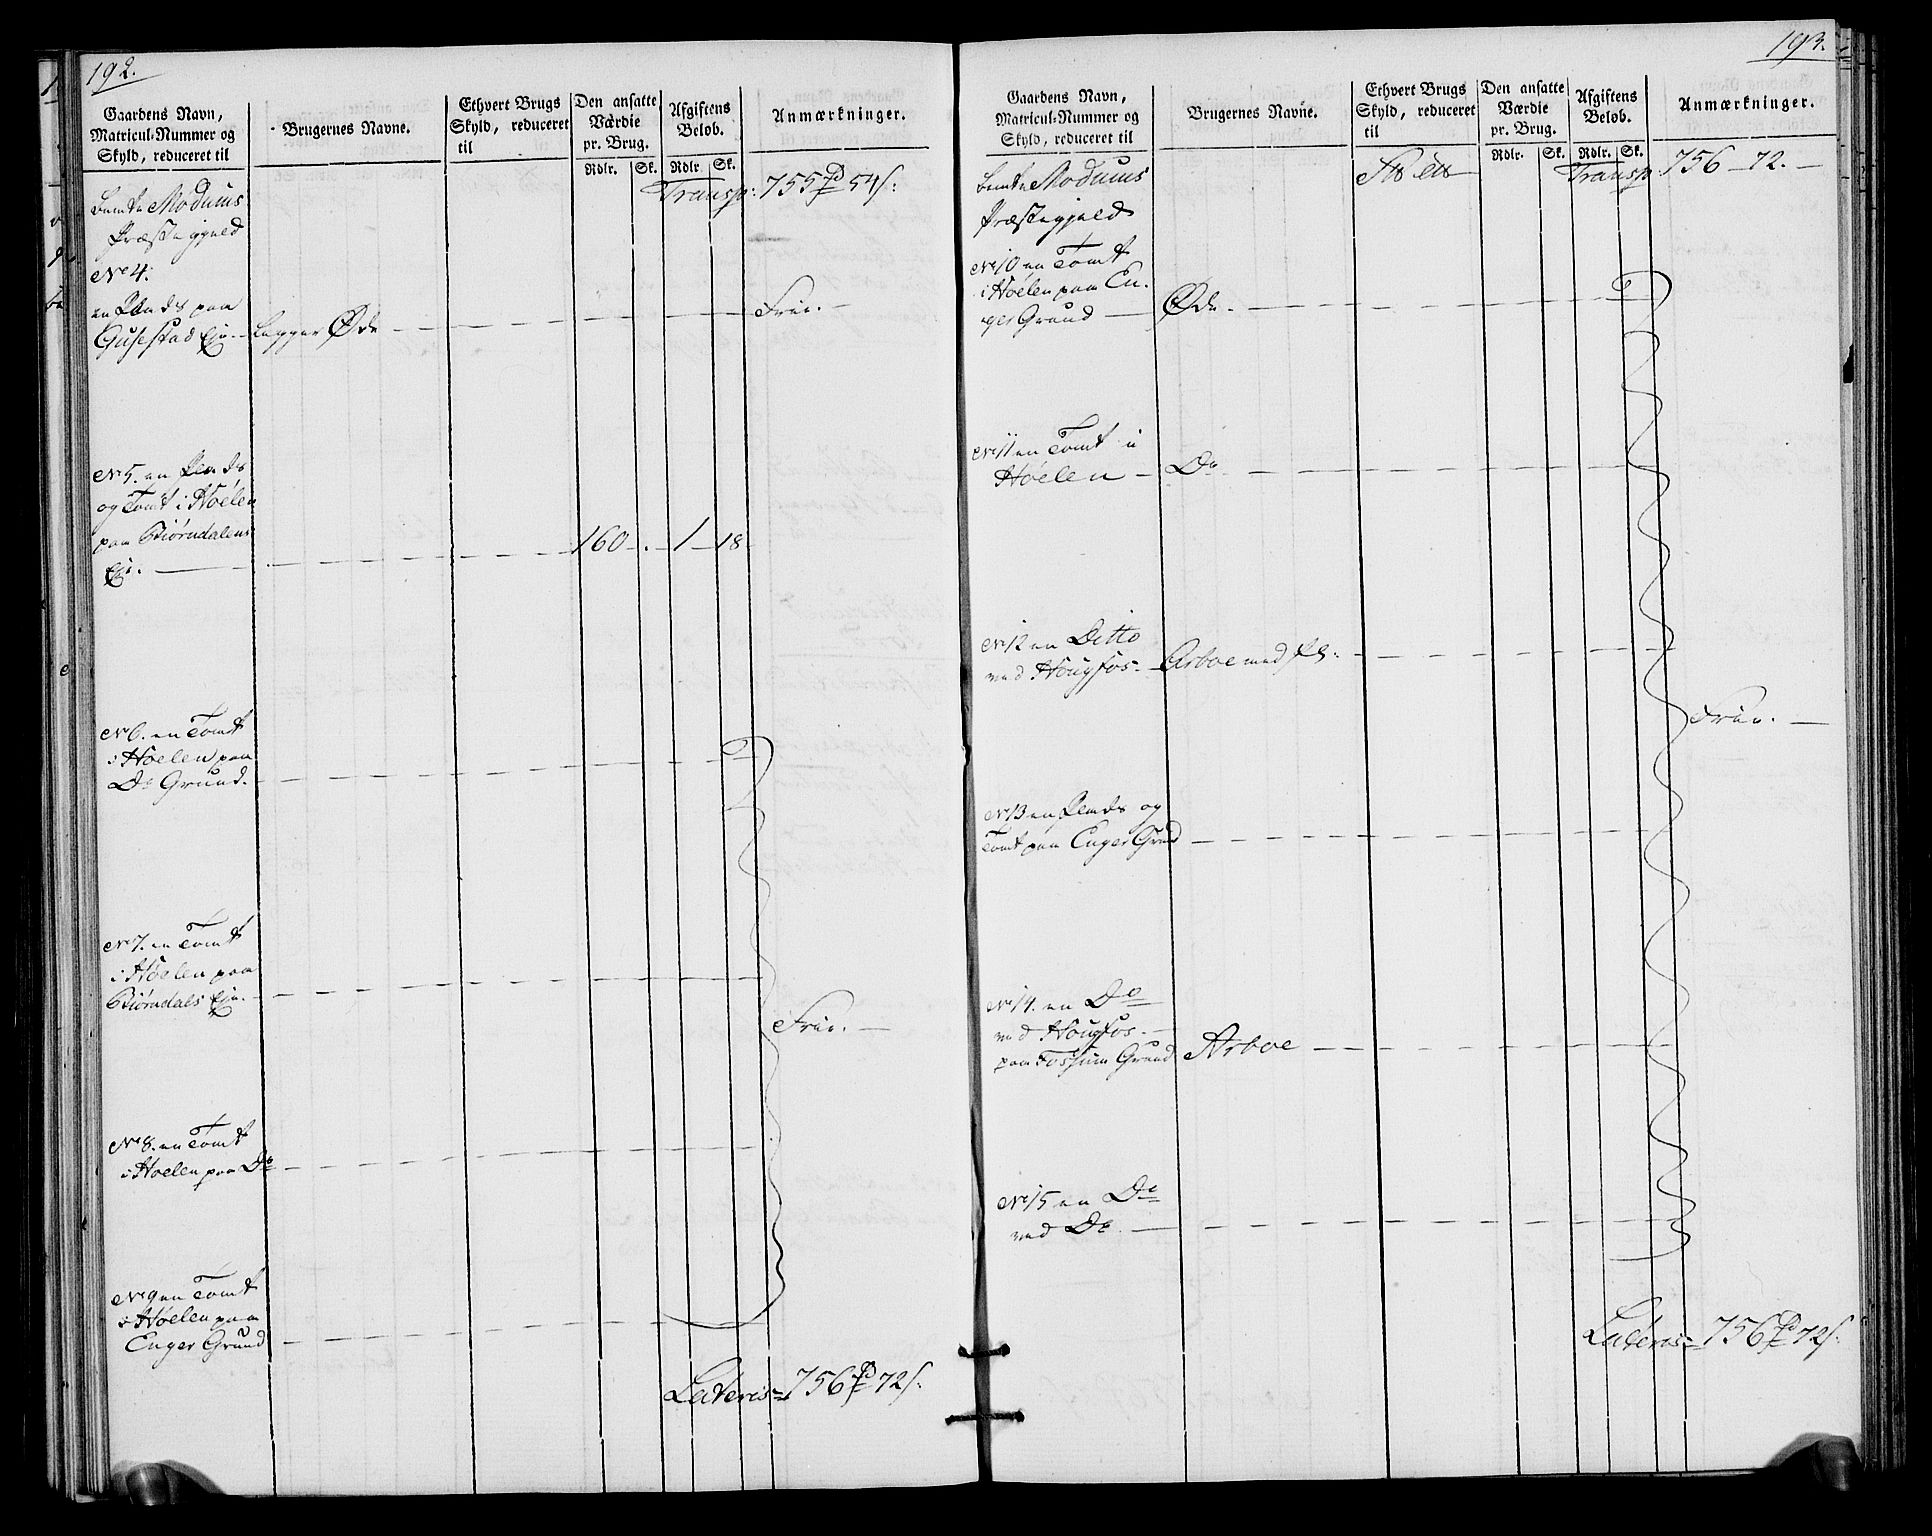 192.
Gaardens Navn,
Matricul-Nummer og
Skyld, reduceret til
Brugernes Navne.
Ethvert Brugs
Skyld, reduceret
til
Den ansatte
Værdie
pr. Brug.
Rdlr. Sk.
Afgiftens
Beløb.
Rdlr. Sk.
Anmærkninger.
Modums
Præstegjeld
Transp: 755 54
No 4.
en Plads paa
Gusestad Eje. ligger Øde Frie.
No 5. en Plads
og Tomt i Høelen
paa Biørndalens
Eje. 160 . 1 18
No 6. en Tomt
i Høelen paa
Do Grund.
No 7. en Tomt
i Høelen paa
Biørndals Eje.
Frie.
No 8. en Tomt
i Høelen paa Do
No 9 en Tomt
i Høelen paa
Enger Grund
Lateris 756 72
193.
Gaardens Navn,
Matricul-Nummer og
Skyld, reduceret til
Brugernes Navne.
Ethvert Brugs
Skyld, reduceret
til
Den ansatte
Værdie
pr. Brug.
Rdlr. Sk.
Afgiftens
Beløb.
Rdlr. Sk.
Anmærkninger.
Modums
Præstegjeld
Transp 756 72.
No 10 en Tomt
i Høelen paa En-
ger Grund Øde
No 11 en Tomt i
Høelen Do
No 12 en Ditto
ved Hougfos. Arboe med
Frie.
No 13 en Plads og
Tomt paa Enger Grund
No 14. en Do
ved Hougfos.
paa Fossum Grund Arboe
No 15 en Do
ved Do.
Lateris 756 72